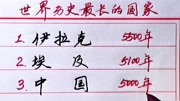 世界历史最长的国家
1. 伊拉克 5500年
2. 埃及 5100年
3. 中国 5000年